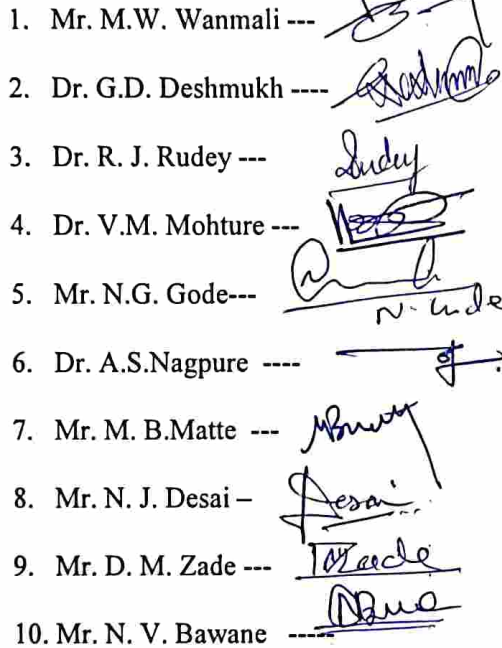 1. Mr. M.W. Wanmali ---
2. Dr. G.D. Deshmukh ----
3. Dr. R. J. Rudey --- Rudey
4. Dr. V.M. Mohture ---
5. Mr. N.G. Gode---
6. Dr. A.S.Nagpure ----
7. Mr. M. B.Matte ---
8. Mr. N. J. Desai – Desai
9. Mr. D. M. Zade ---
10. Mr. N. V. Bawane -----